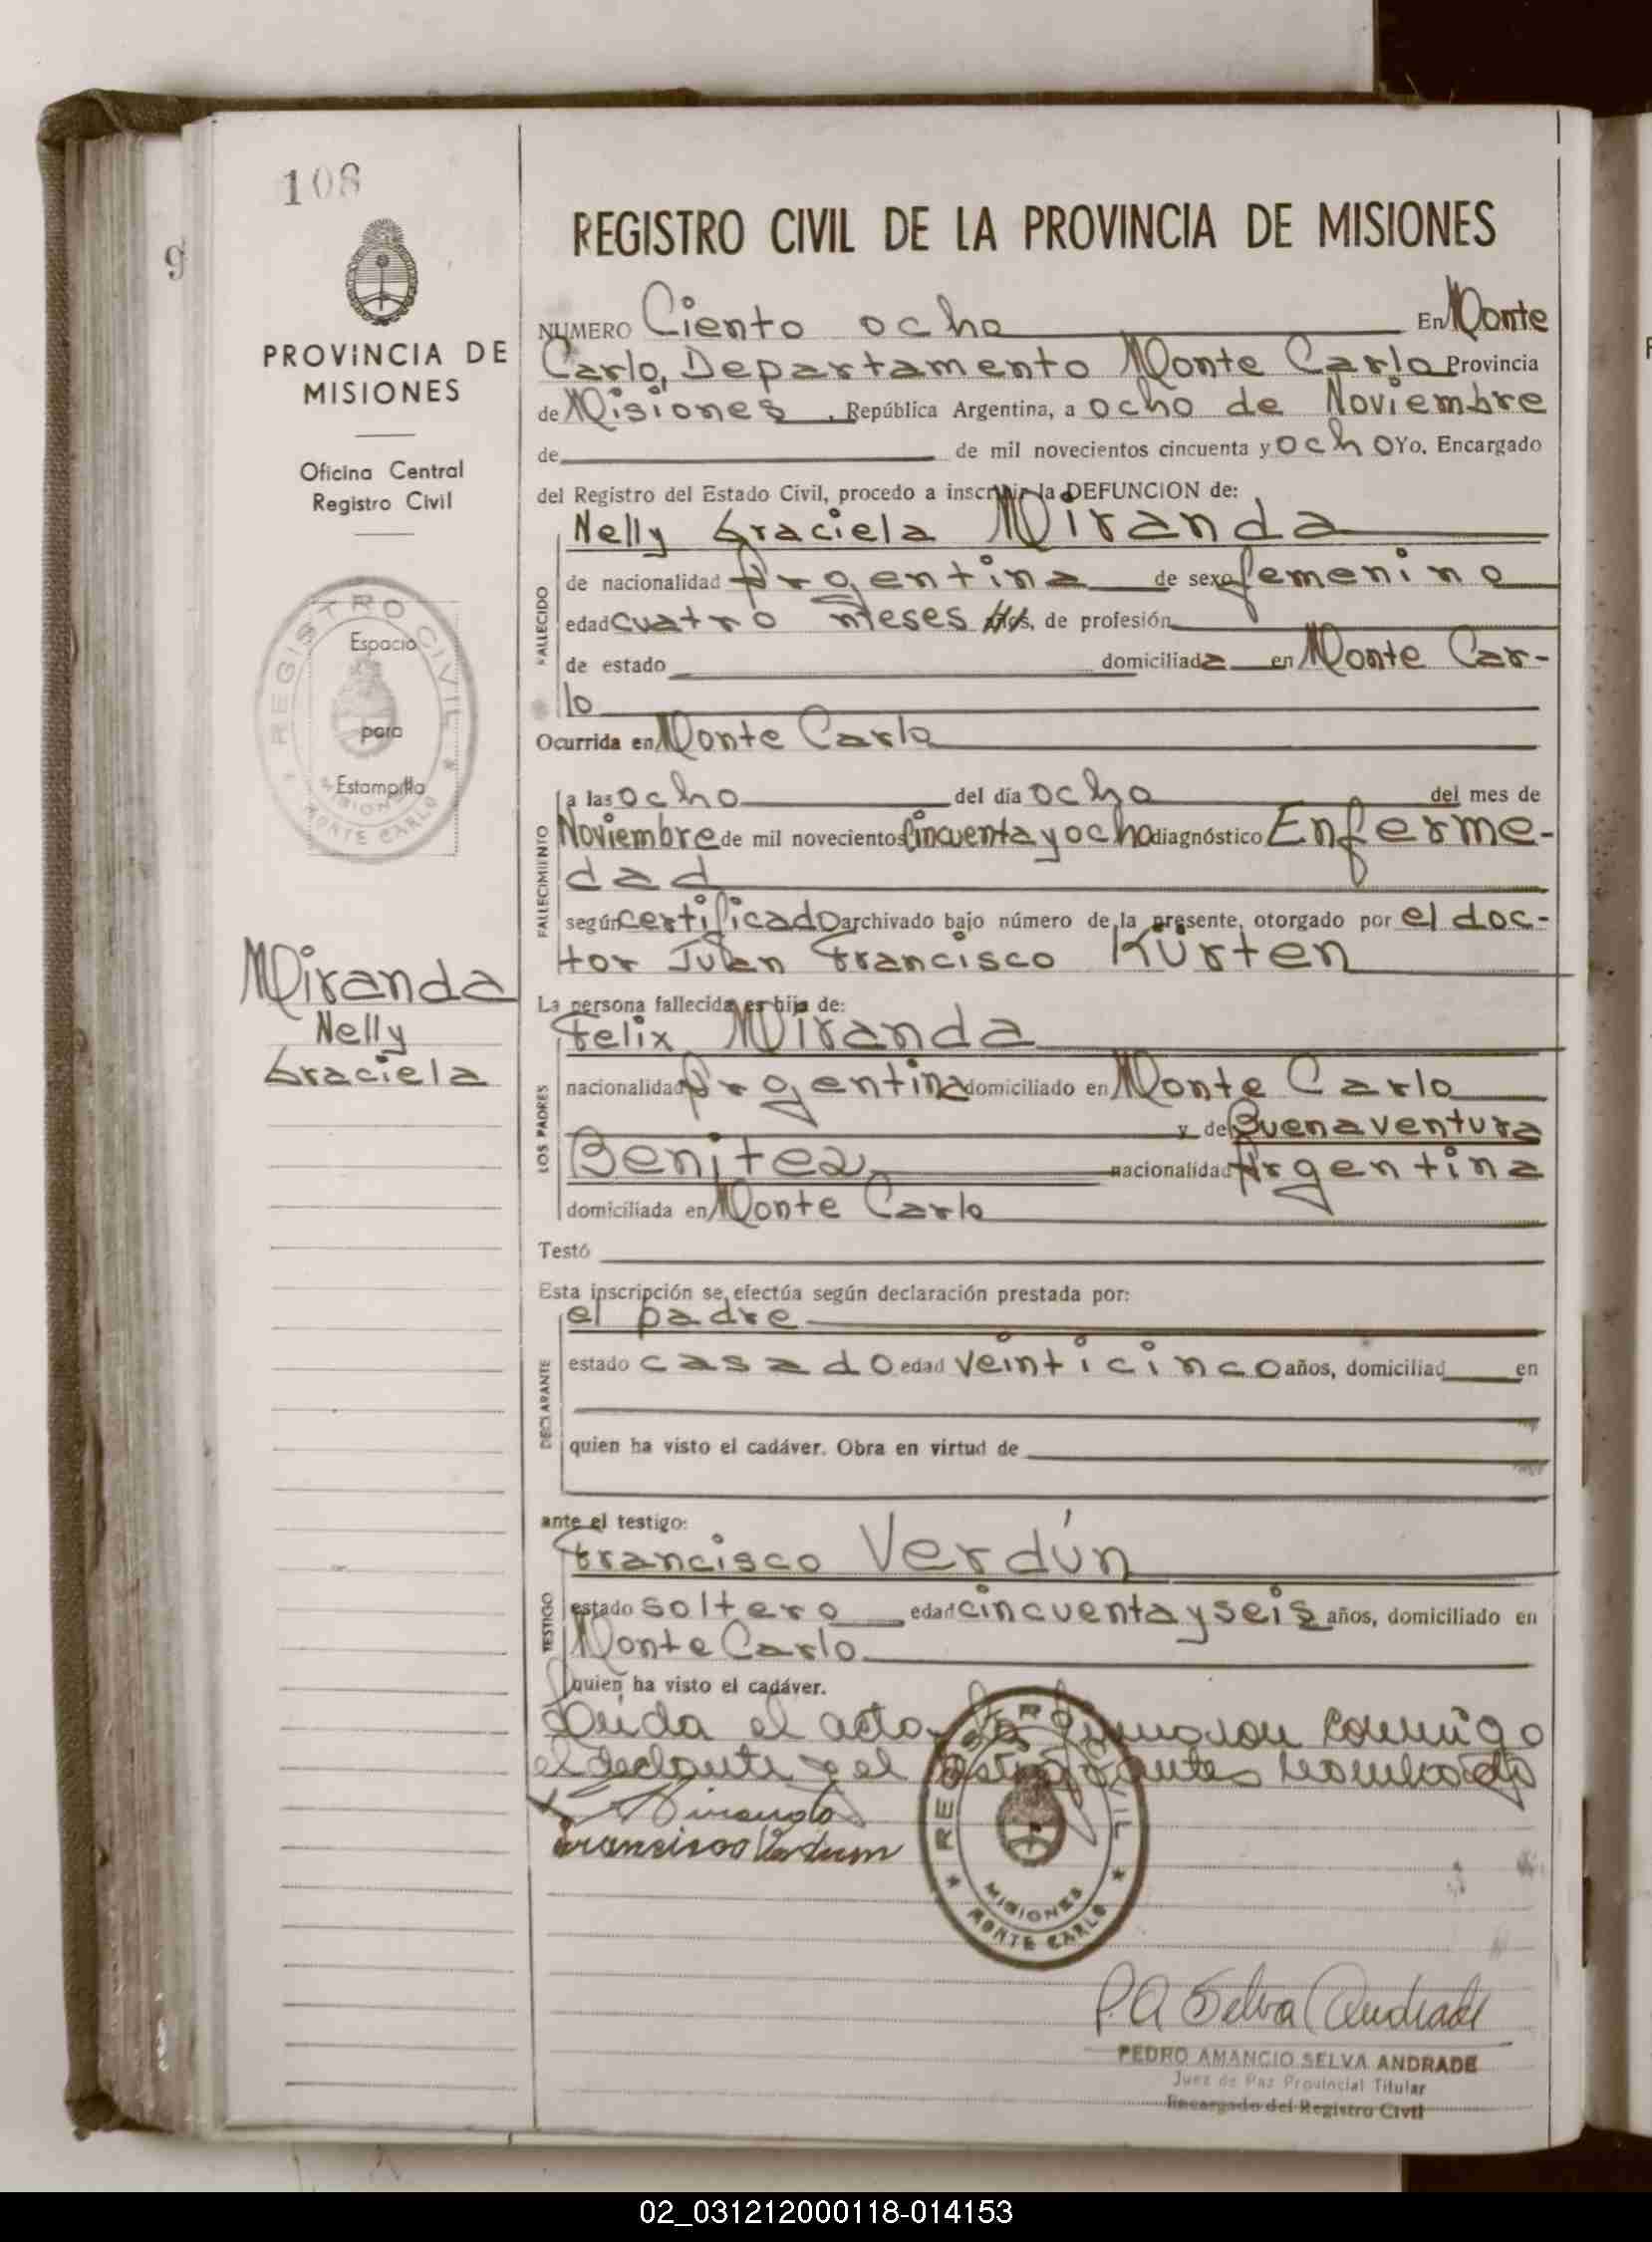 108
9
PROVINCIA DE
MISIONES
Oficina Central
Registro Civil
REGISTRO CIVIL
Espacio
para
Estampilla
MISIONES
MONTE CARLO
Miranda
Nelly
Graciela
REGISTRO CIVIL DE LA PROVINCIA DE MISIONES
NUMERO Ciento ocho En Monte
Carlo, Departamento Monte Carlo Provincia
de Misiones, República Argentina, a ocho de Noviembre
de de mil novecientos cincuenta y ocho Yo, Encargado
del Registro del Estado Civil, procedo a inscribir la DEFUNCION de:
Nelly Graciela Miranda
FALLECIDO
de nacionalidad Argentina de sexo femenino
edad cuatro meses años, de profesión
de estado domiciliada en Monte Car-
lo
Ocurrida en Monte Carlo
FALLECIMIENTO
a las ocho del día ocho del mes de
Noviembre de mil novecientos cincuenta y ocho diagnóstico Enferme-
dad
según certificado archivado bajo número de la presente, otorgado por el doc-
tor Juan Francisco Kürten
La persona fallecida es hija de:
Felix Miranda
LOS PADRES
nacionalidad Argentina domiciliado en Monte Carlo
y de Buenaventura
Benitez nacionalidad Argentina
domiciliada en Monte Carlo
Testó
Esta inscripción se efectúa según declaración prestada por:
el padre
DECLARANTE
estado casado edad veinticinco años, domiciliad en
quien ha visto el cadáver. Obra en virtud de
ante el testigo:
Francisco Verdún
TESTIGO
estado soltero edad cincuenta y seis años, domiciliado en
Monte Carlo
quien ha visto el cadáver.
Leida el acta, la firmaron conmigo
el declante y el testigo antes nombrado
Miranda
Francisco Verdum
REGISTRO CIVIL
MISIONES
MONTE CARLO
P. A Selva Andrade
PEDRO AMANCIO SELVA ANDRADE
Juez de Paz Provincial Titular
Encargado del Registro Civil
02_031212000118-014153